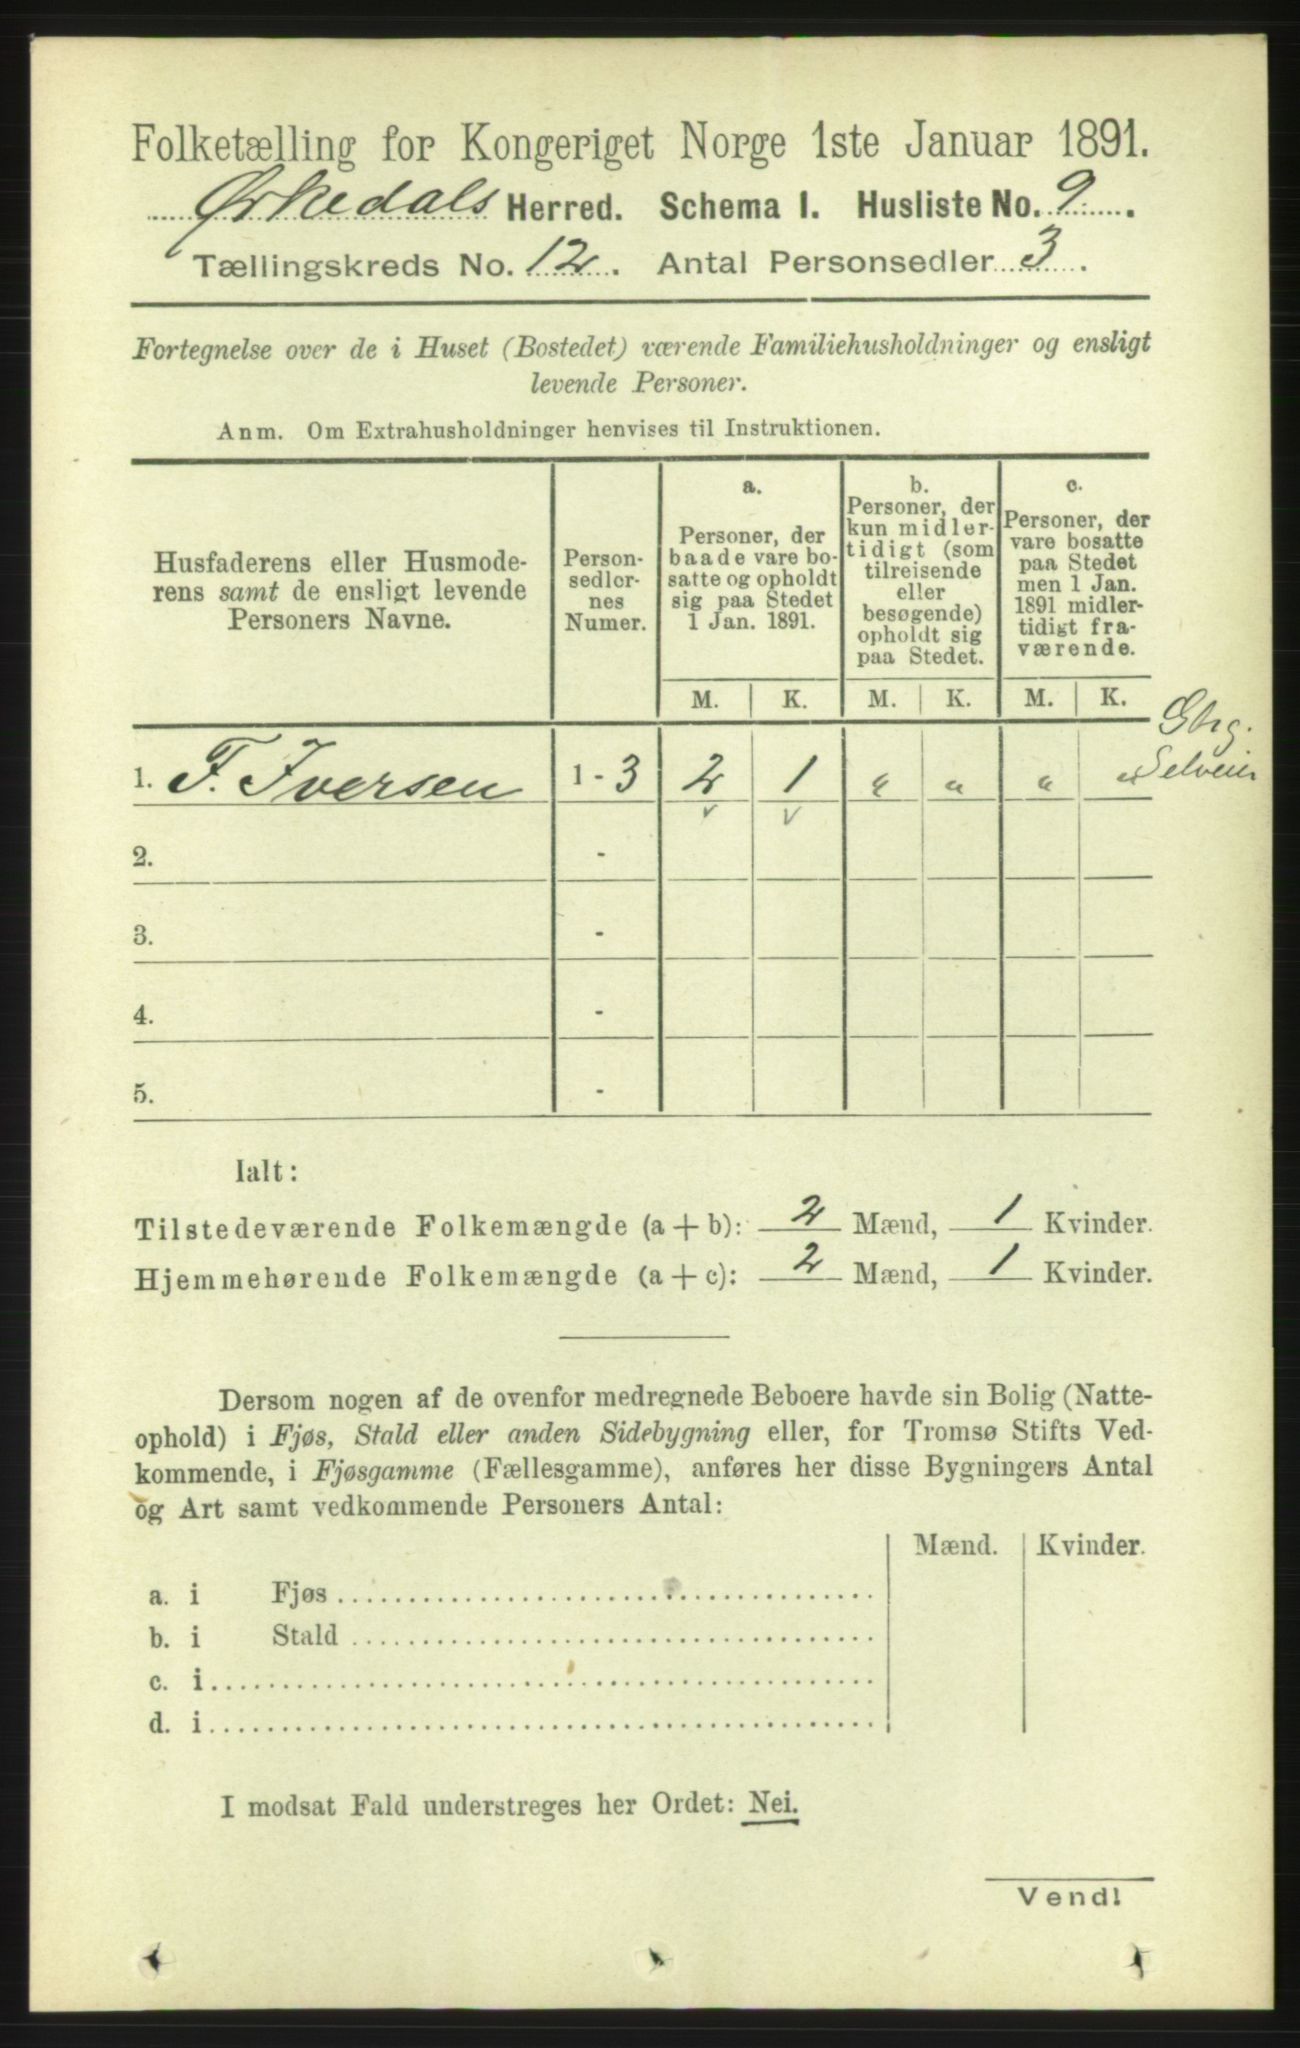 Folketælling for Kongeriget Norge 1ste Januar 1891.
Ørkedals Herred. Schema I. Husliste No. 9.
Tællingskreds No. 12. Antal Personsedler 3.
Fortegnelse over de i Huset (Bostedet) værende Familiehusholdninger og ensligt
levende Personer.
Anm. Om Extrahusholdninger henvises til Instruktionen.
Husfaderens eller Husmode-
rens samt de ensligt levende
Personers Navne.
Person-
sedler-
nes
Numer.
a.
Personer, der
baade vare bo-
satte og opholdt
sig paa Stedet
1 Jan. 1891.
b.
Personer, der
kun midler-
tidigt (som
tilreisende
eller
besøgende)
opholdt sig
paa Stedet.
c.
Personer, der
vare bosatte
paa Stedet
men 1 Jan.
1891 midler-
tidigt fra-
værende.
M. K. M. K. M. K.
Gbrg.
Selveier
1. F. Iversen 1 - 3 2 1 " " " "
2. -
3. -
4. -
5. -
Ialt:
Tilstedeværende Folkemængde (a + b): 2 Mænd, 1 Kvinder.
Hjemmehørende Folkemængde (a + c): 2 Mænd, 1 Kvinder.
Dersom nogen af de ovenfor medregnede Beboere havde sin Bolig (Natte-
ophold) i Fjøs, Stald eller anden Sidebygning eller, for Tromsø Stifts Ved-
kommende, i Fjøsgamme (Fællesgamme), anføres her disse Bygningers Antal
og Art samt vedkommende Personers Antal:
Mænd. Kvinder.
a. i Fjøs
b. i Stald
c. i
d. i
I modsat Fald understreges her Ordet: Nei.
Vend!